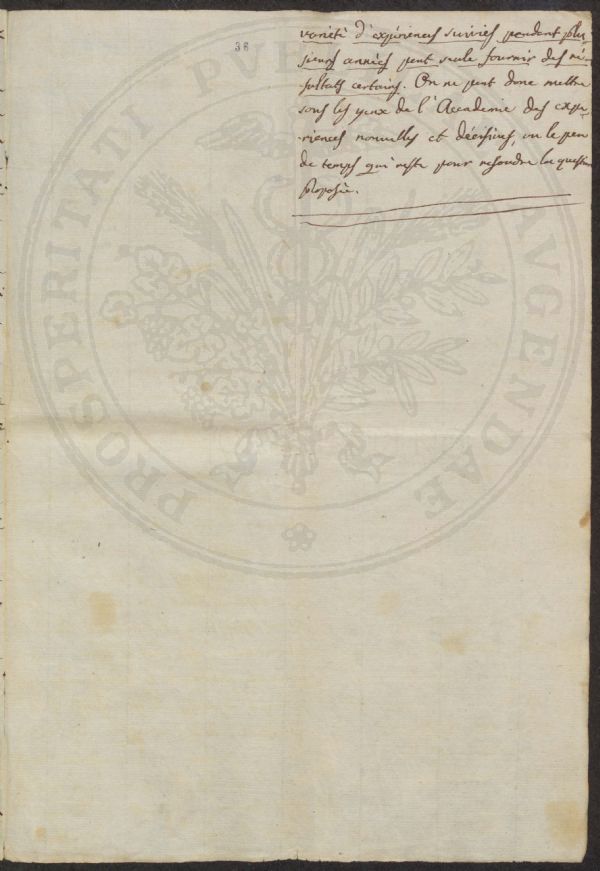 36
varieté d'expériences suivies pendant plu-
sieurs années peut seule fournir des ré-
sultats certains. On ne peut donc mettre
sous les yeux de l'Academie des expé-
riences nouvelles et décisives, vu le peu
de temps qui reste pour resoudre la question
proposée.
PROSPERITATI PVB AVGENDAE